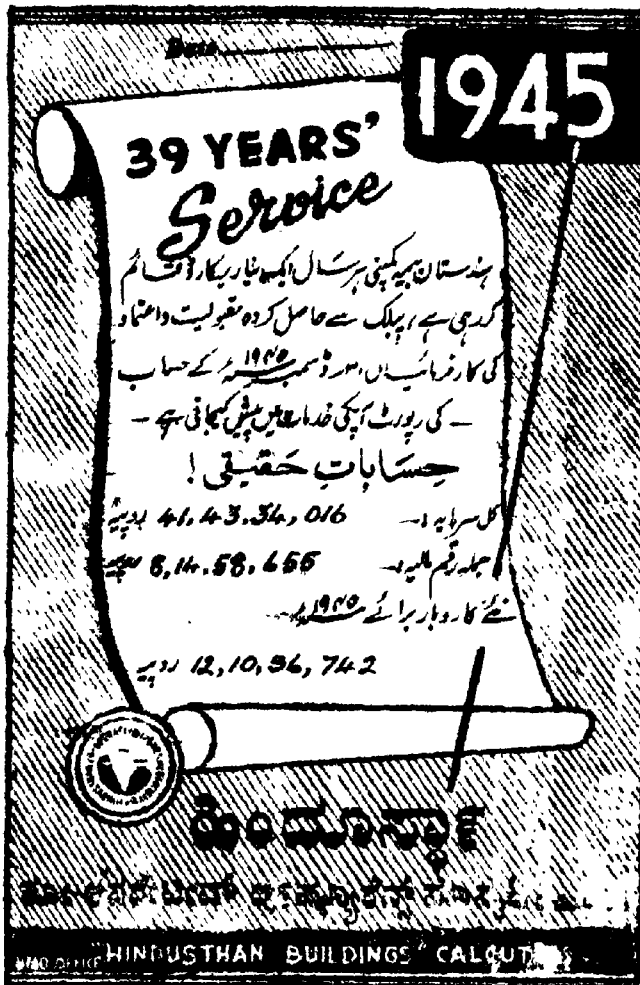 Date
1945
39 YEARS'
Service
ہندستان بیمہ کمپنی ہر سال ایک نیا ریکارڈ قائم
کر رہی ہے، پبلک سے حاصل کردہ مقبولیت و اعتماد
کی کارفرمائیاں ۳۱ ڈسمبر ۱۹۴۵ء کے حساب
کی رپورٹ آپکی خدمات میں پیش کیجاتی ہے
حِسَاباتِ حَقیقی!
کل سرمایہ :- 41,43,34,016 روپیہ
جملہ رقم مالیہ :- 8,14,58,655 روپیہ
نئے کاروبار برائے ۱۹۴۵
12,10,36,742 روپیہ
ಹಿಂದೂಸ್ಥಾನ್
HEAD OFFICE "HINDUSTHAN BUILDINGS" CALCUTTA